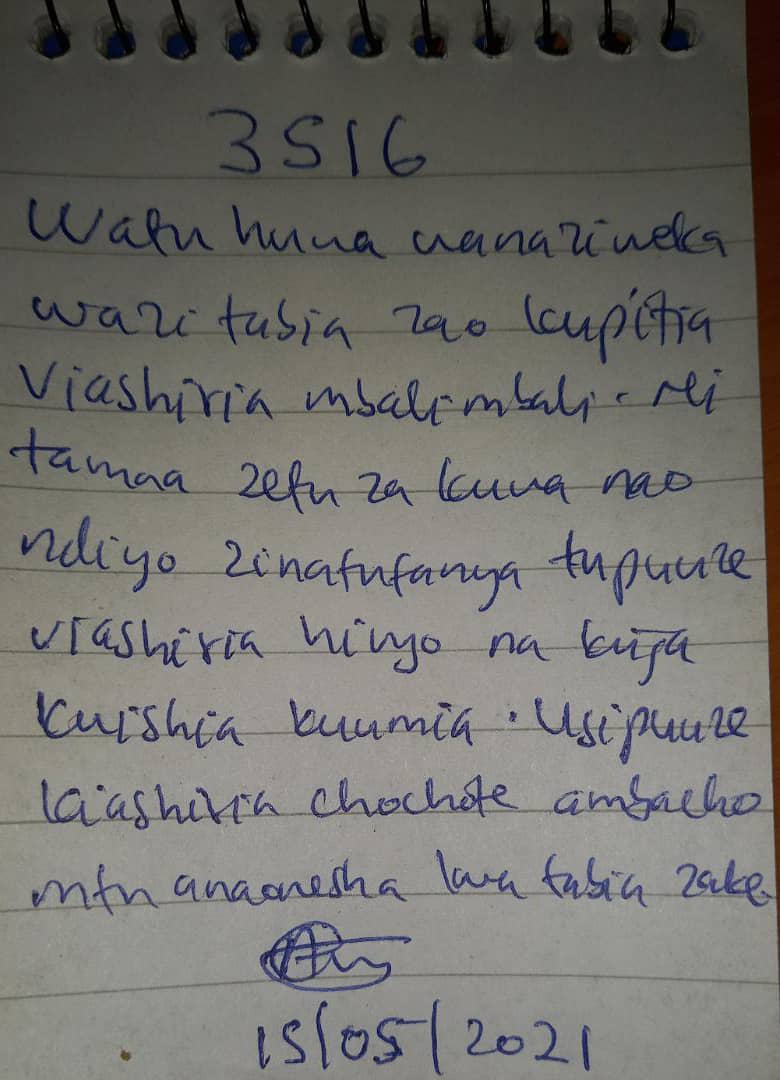 3516
Watu huwa wanaziweka
wazi tabia zao kupitia
viashiria mbalimbali. Ni
tamaa zetu za kuwa nao
ndiyo zinatufanya tupuuze
viashiria hivyo na kuja
kuishia kuumia. Usipuuze
kiashiria chochote ambacho
mtu anaonesha kwa tabia zake.
15/05/2021